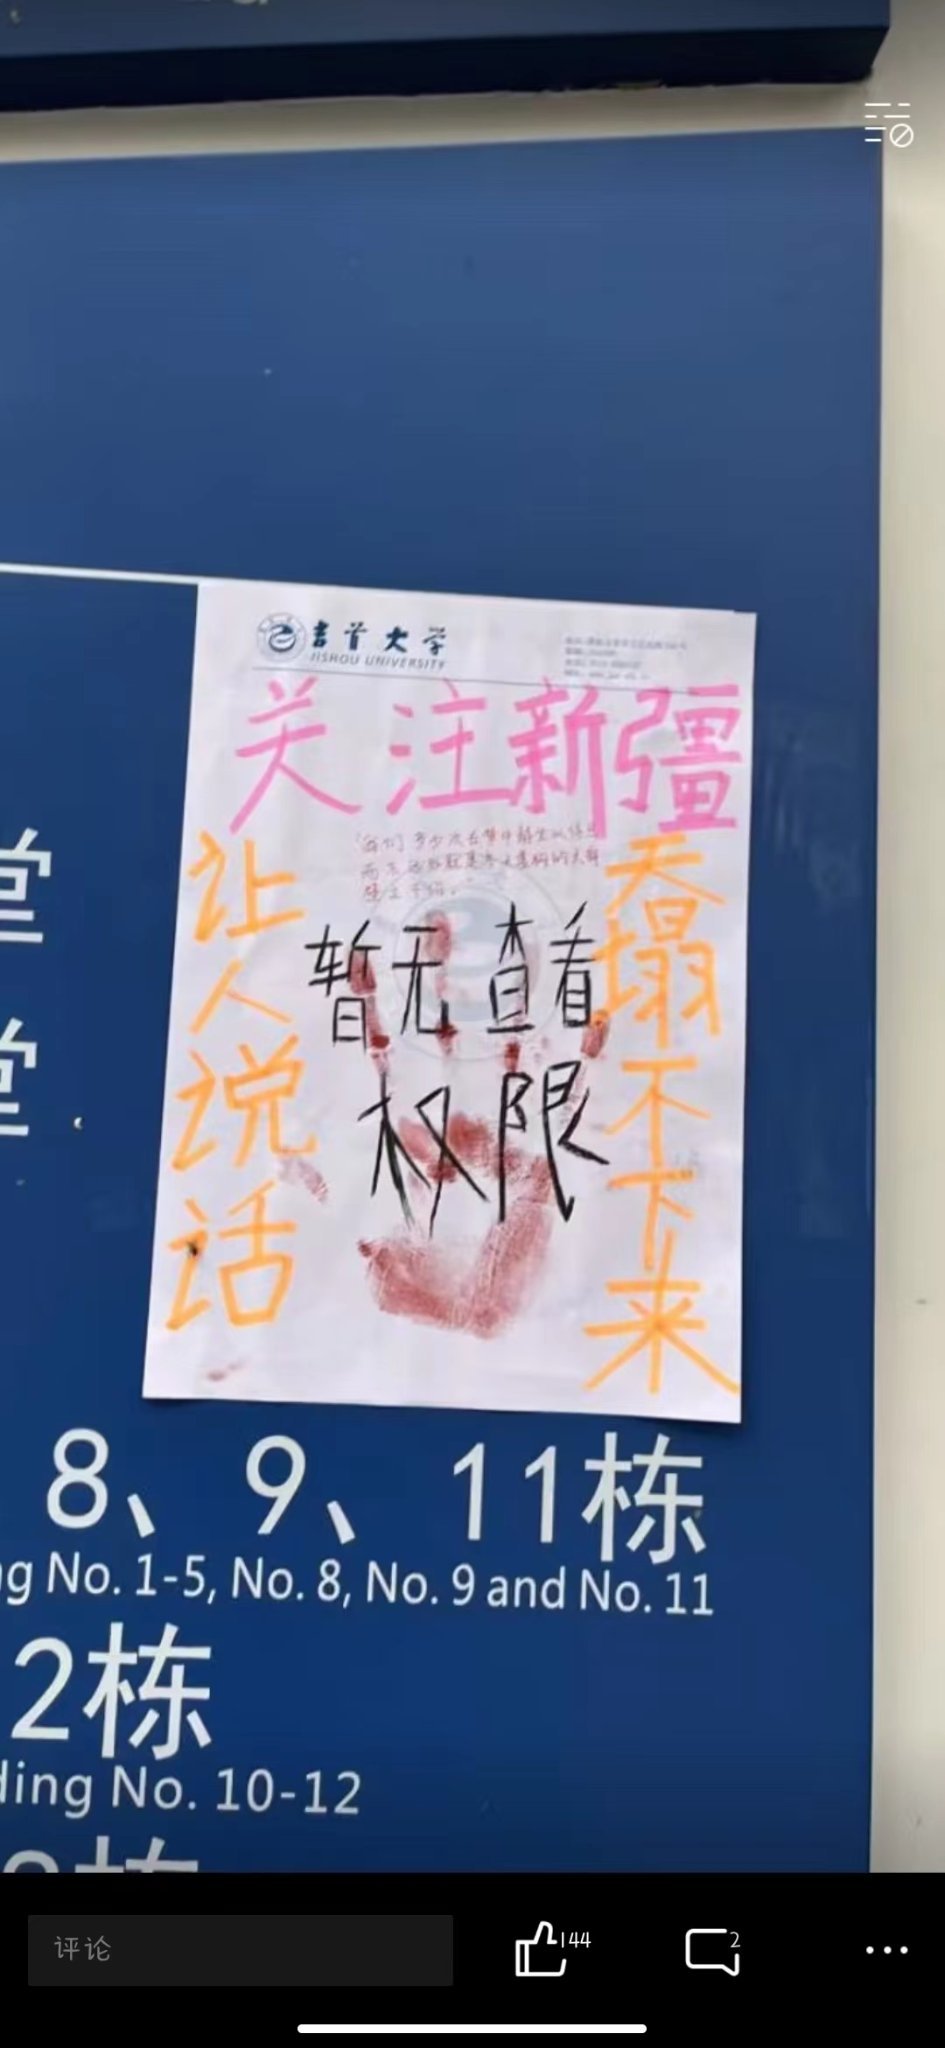 吉首大学
JISHOU UNIVERSITY
关注新疆
让人说话
天塌不下来
暂无查看
权限
堂
堂
8、9、11栋
ng No. 1-5, No. 8, No. 9 and No. 11
2栋
ding No. 10-12
评论
144
2